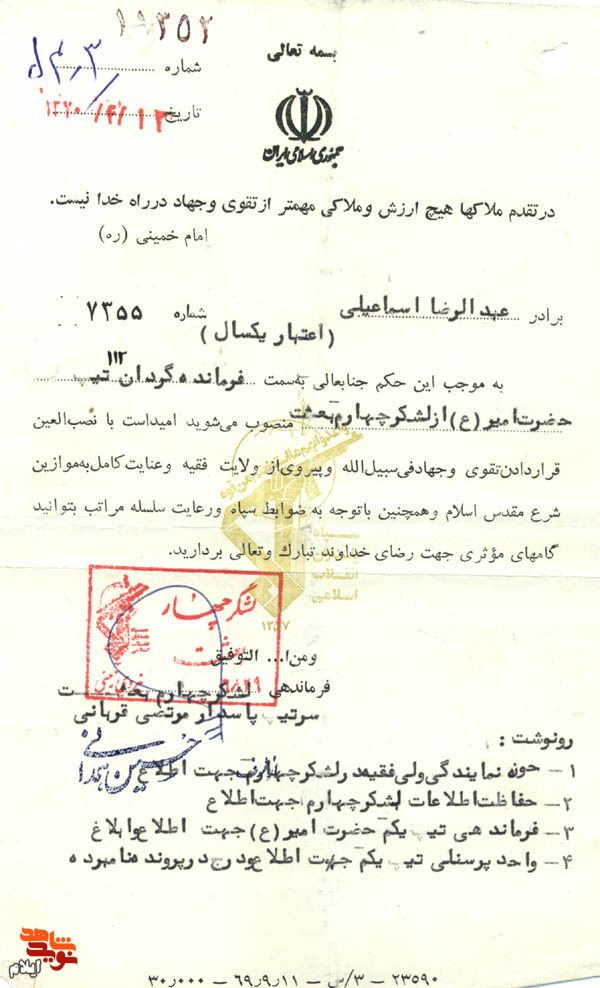 ۱۱۳۵۲
بسمه تعالی
شماره
تاریخ ۱۳۷۰/۴/۱۲
جمهوری اسلامی ایران
در تقدم ملاکها هیچ ارزش و ملاکی مهمتر از تقوی و جهاد در راه خدا نیست.
امام خمینی (ره)
برادر عبدالرضا اسماعیلی شماره ۷۳۵۵
(اعتبار یکسال)
به موجب این حکم جنابعالی به‌سمت فرمانده گردان ۱۱۲ تیپ
حضرت امیر (ع) از لشکر چهارم بعثت منصوب می‌شوید امید است با نصب‌العین
قراردادن تقوی و جهاد فی سبیل‌الله و پیروی از ولایت فقیه و عنایت کامل به موازین
شرع مقدس اسلام و همچنین با توجه به ضوابط سپاه و رعایت سلسله مراتب بتوانید
گامهای مؤثری جهت رضای خداوند تبارك و تعالی بردارید.
سپاه
انقلاب
اسلامی
۱۳۵۷
لشکر چهار
بعثت
ومن‌ا... التوفیق
فرماندهی لشکر چهارم بعثت
سرتیپ پاسدار مرتضی قربانی
حسین همدانی
رونوشت :
۱- حوزه نمایندگی ولی فقیه در لشکر چهارم جهت اطلاع
۲- حفاظت اطلاعات لشکر چهارم جهت اطلاع
۳- فرماندهی تیپ یکم حضرت امیر (ع) جهت اطلاع و ابلاغ
۴- واحد پرسنلی تیپ یکم جهت اطلاع و درج در پرونده نامبرده
شاهد
نوید
ایلام
۲۳۵۹۰ - ۳/س - ۶۹٫۹٫۱۱ - ۳۰٫۰۰۰